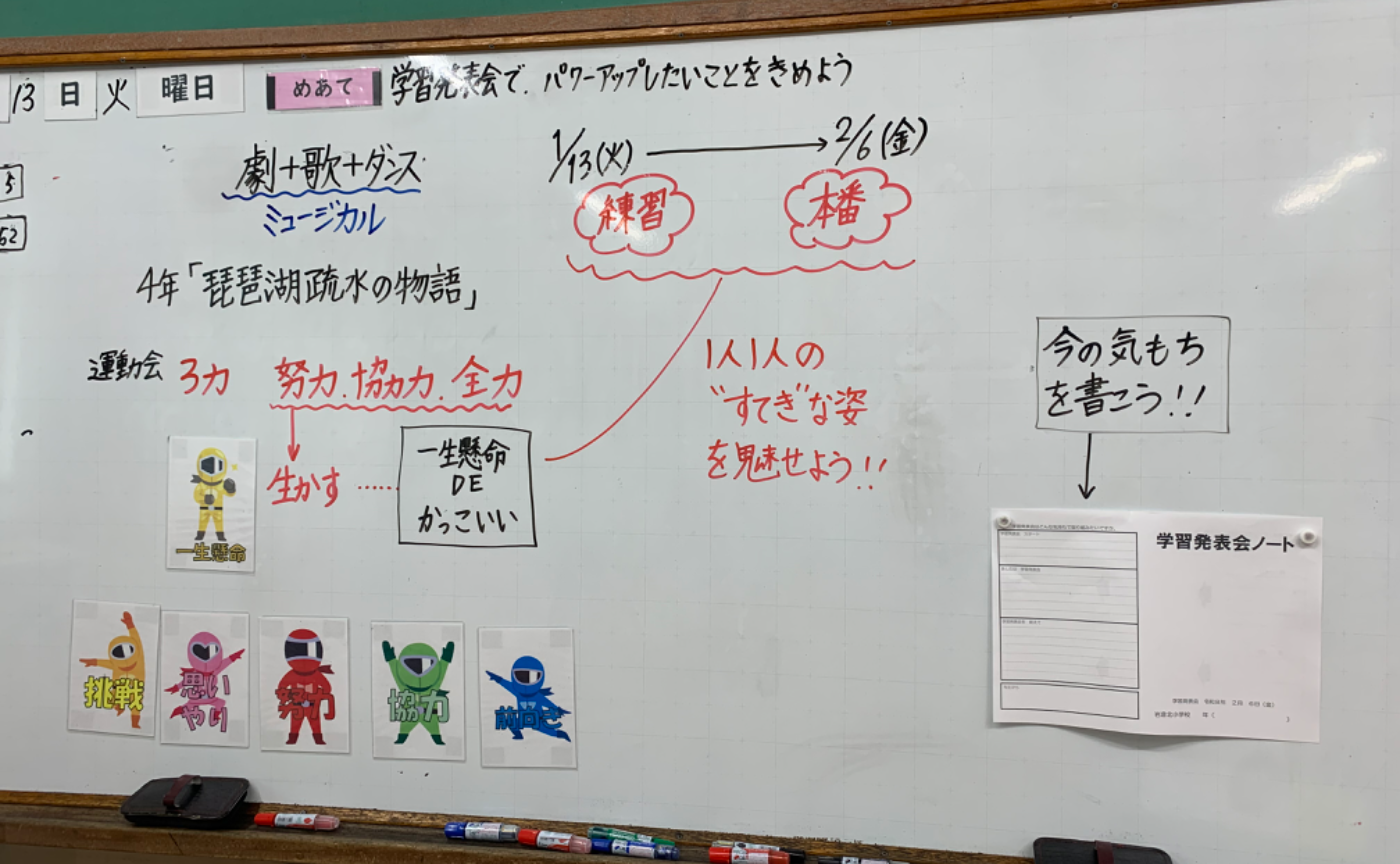 13 日 火 曜日
めあて 学習発表会で、パワーアップしたいことをきめよう
5
52
劇+歌+ダンス
ミュージカル
4年「琵琶湖疏水の物語」
1/13(火) → 2/6(金)
練習 本番
運動会 3力 努力、協力、全力
生かす ……
一生懸命
DE
かっこいい
1人1人の
"すてき"な姿
を魅せよう!!
今の気もち
を書こう!!
一生懸命
挑戦
思い
やり
努力
協力
前向き
学習発表会ノート